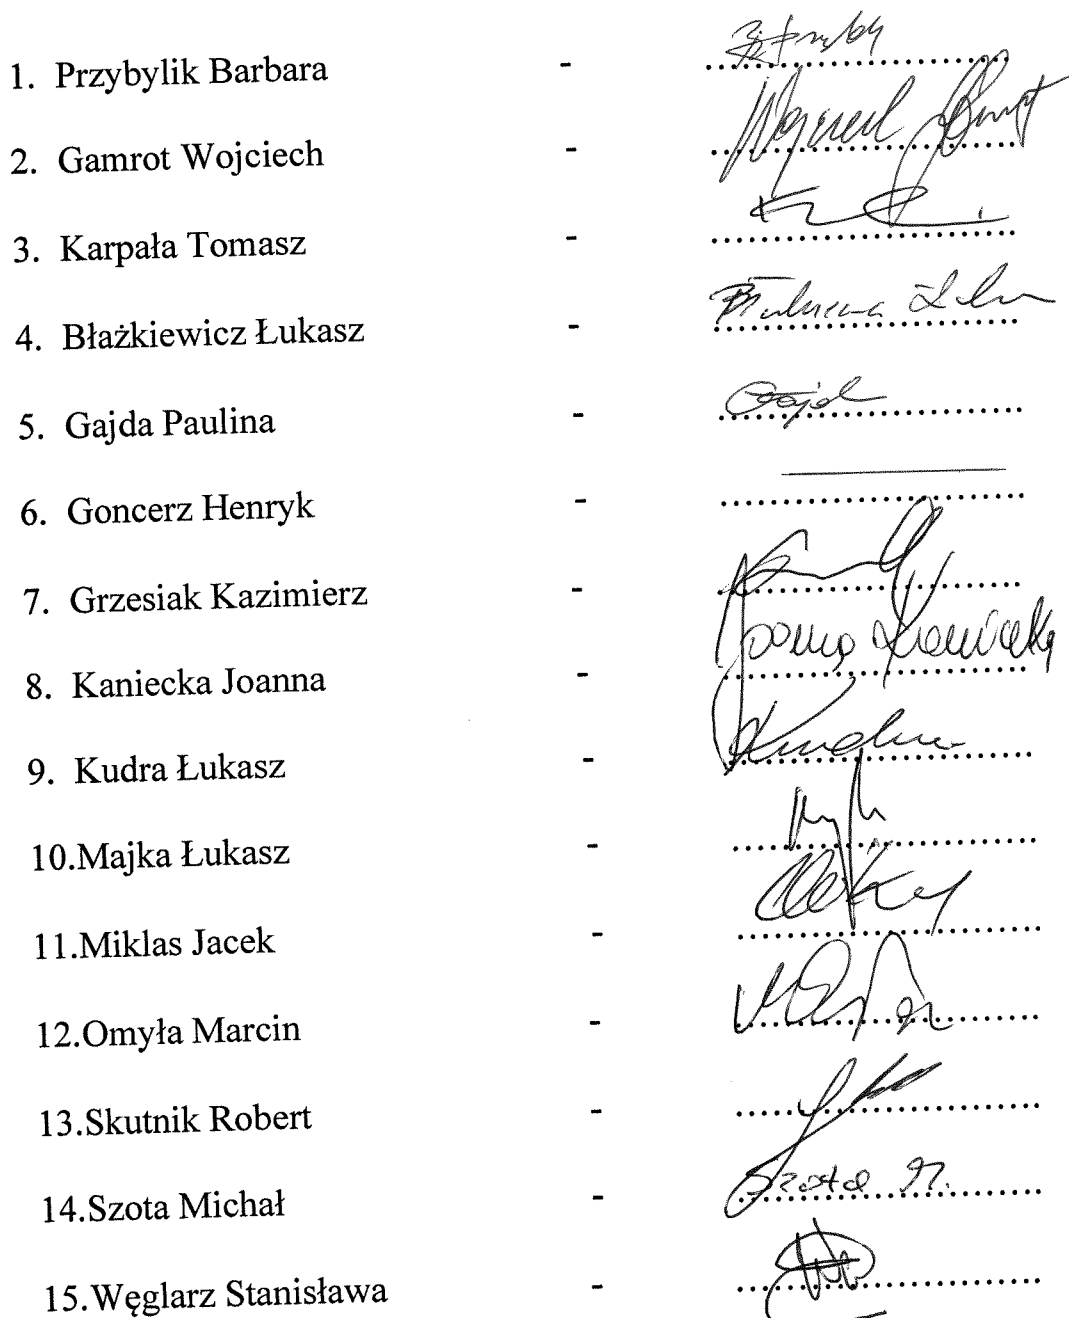 1. Przybylik Barbara -
2. Gamrot Wojciech - Wojciech Gamrot
3. Karpała Tomasz -
4. Błażkiewicz Łukasz -
5. Gajda Paulina - Gajda
6. Goncerz Henryk -
7. Grzesiak Kazimierz -
8. Kaniecka Joanna - Joanna Kaniecka
9. Kudra Łukasz -
10.Majka Łukasz -
11.Miklas Jacek -
12.Omyła Marcin -
13.Skutnik Robert -
14.Szota Michał - Szota M.
15.Węglarz Stanisława -